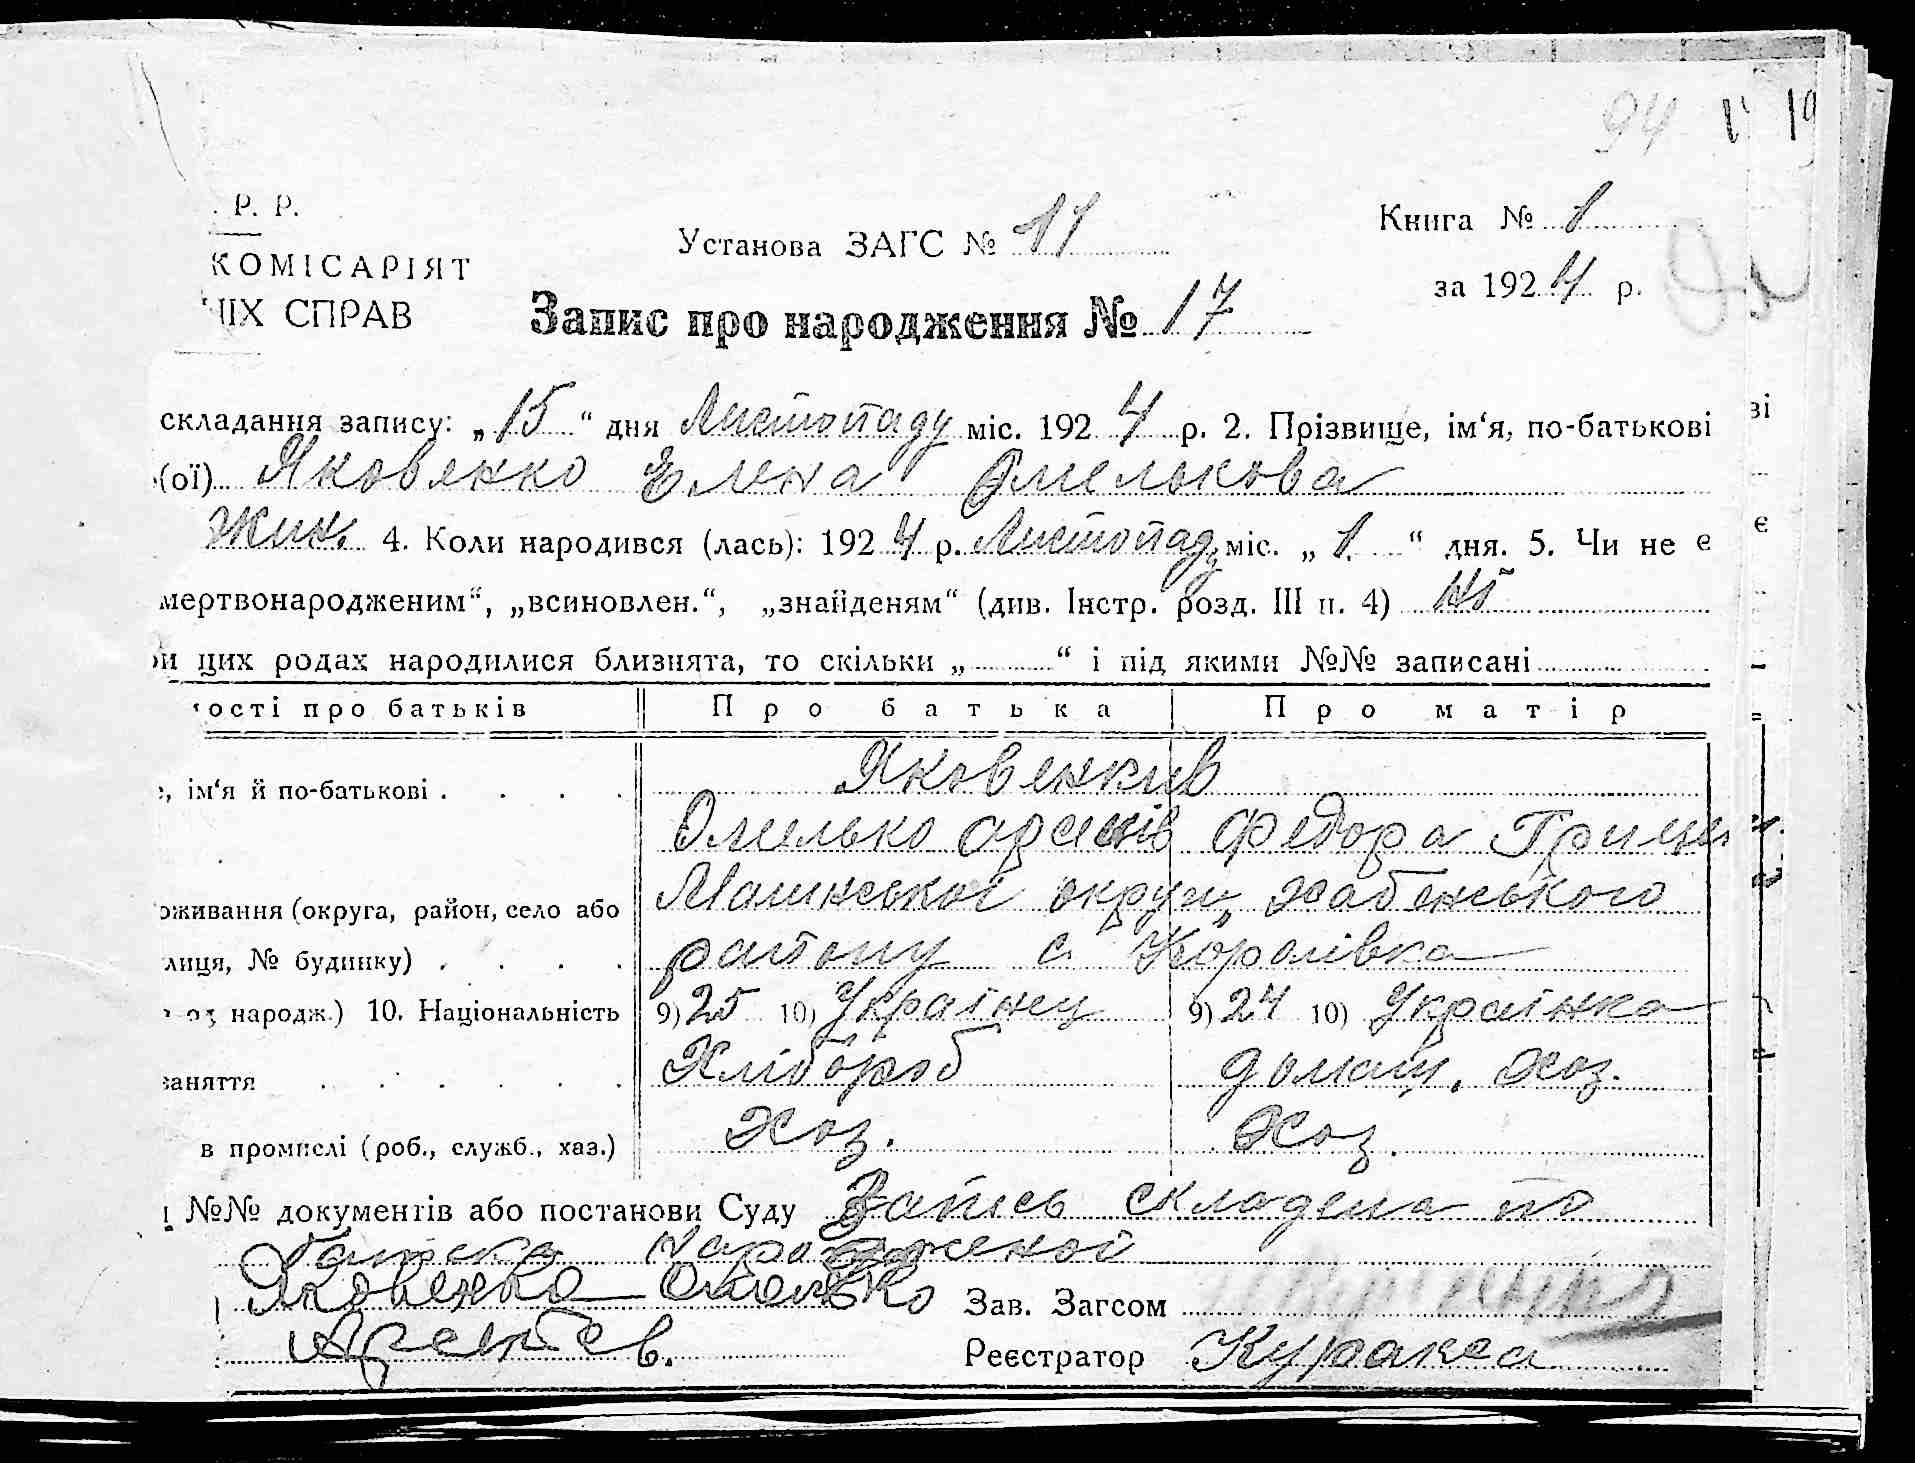 94
Р. Р.
Установа ЗАГС № 11
Книга № 1
КОМІСАРІЯТ
за 1924 р.
СПРАВ
Запис про народження № 17
складання запису: „15“ дня Листопаду міс. 1924 р. 2. Прізвище, ім‘я, по-батькові
(ої) Яковенко Елена Омелькова
жин. 4. Коли народився (лась): 1924 р. Листопаду міс. „1“ дня. 5. Чи не є
мертвонародженим“, „всиновлен.“, „знайденям“ (див. Інстр. розд. III п. 4) Ні
цих родах народилися близнята, то скільки „ “ і під якими №№ записані
ості про батьків Про батька Про матір
Яковенків
ім‘я й по-батькові
Омелько Арсенів Федора Гриць
оживання (округа, район, село або Малинської округи, Хабенського
лиця, № будинку) району с. Королівка
народж.) 10. Національність 9) 25 10) Українец 9) 24 10) Українка
заняття Хлібороб домаш. хоз.
в промислі (роб., служб., хаз.) Хоз. Хоз.
№№ документів або постанови Суду Запись складена по
Яковенко Омелько Зав. Загсом
Реєстратор Куракса